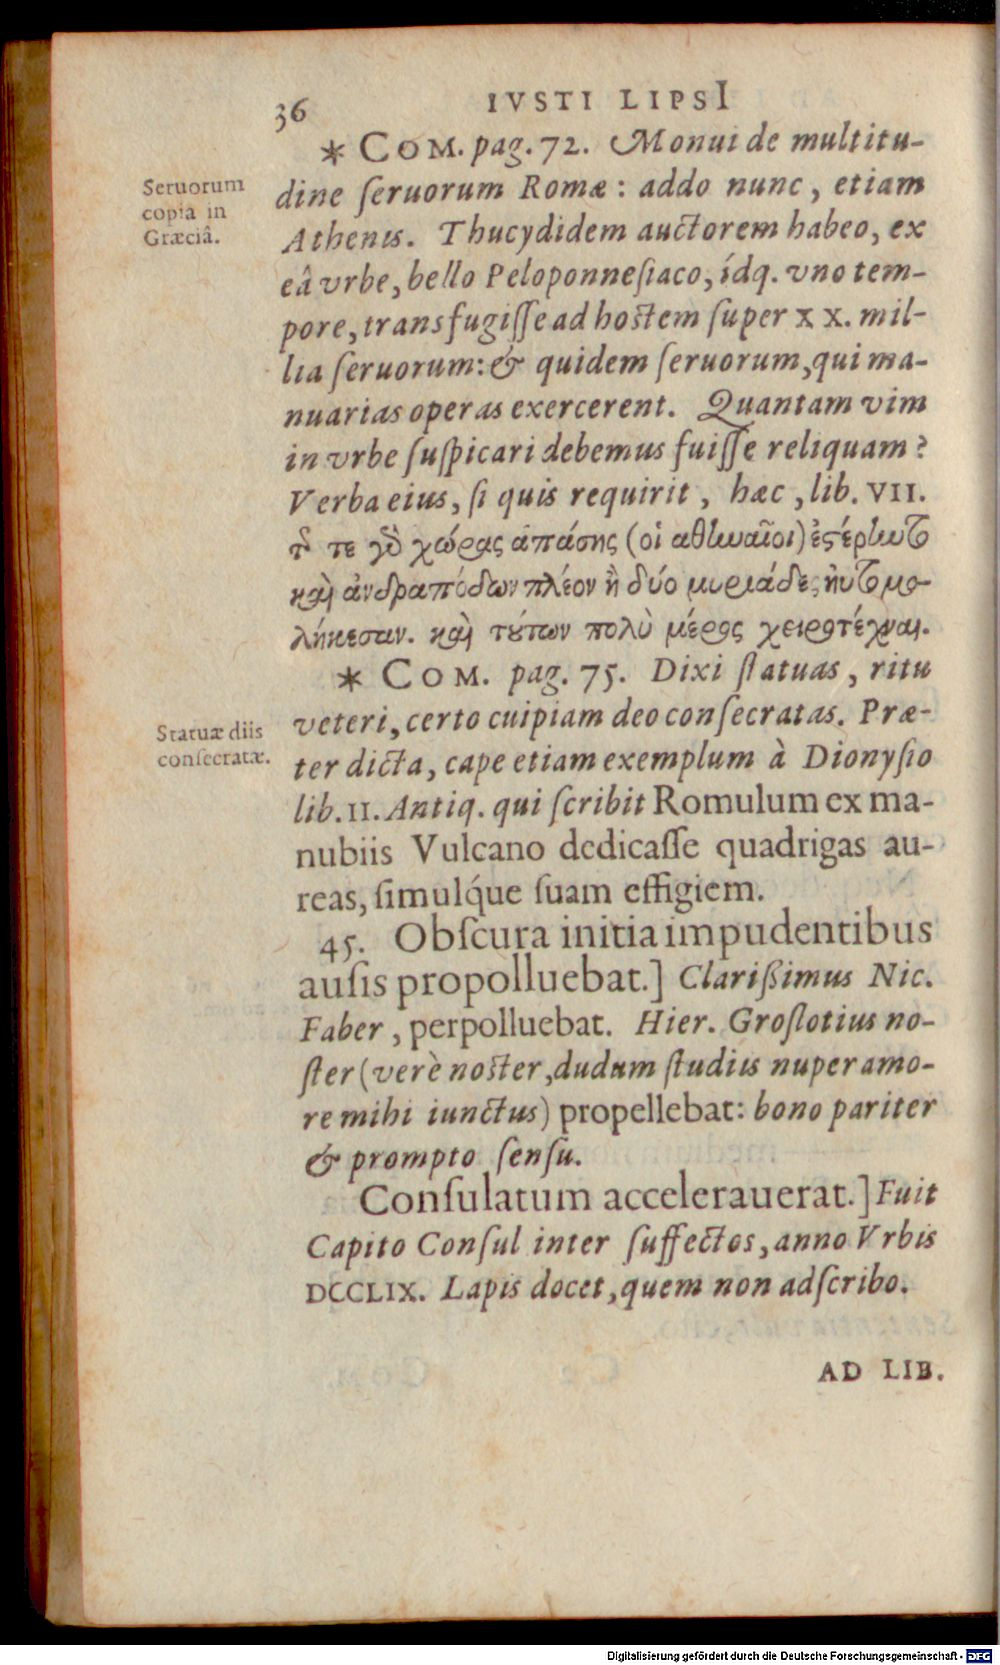 36
IVSTI LIPSI
* COM. pag. 72. Monui de multitu-
Seruorum
copia in
Græciâ.
dine ſeruorum Romæ: addo nunc, etiam
Athenis. Thucydidem auctorem habeo, ex
eâ vrbe, bello Peloponneſiaco, ídq. vno tem-
pore, transfugiſſe ad hostem ſuper XX. mil-
lia ſeruorum: & quidem ſeruorum, qui ma-
nuarias operas exercerent. Quantam vim
in vrbe ſuſpicari debemus fuiſſe reliquam?
Verba eius, ſi quis requirit, hæc, lib. VII.
τῆς τε γὸ χώρας ἁπάσης (οἱ αθηναῖοι) ἐςέρηντο
καὶ ἀνδραπόδων πλέον ἢ δύο μυριάδες ηὐτομο-
λήκεσαν. καὶ τȣ́των πολὺ μέρος χειροτέχναι.
* COM. pag. 75. Dixi ſtatuas, ritu
Statuæ diis
conſecratæ.
veteri, certo cuipiam deo conſecratas. Præ-
ter dicta, cape etiam exemplum à Dionyſio
lib. II. Antiq. qui ſcribit Romulum ex ma-
nubiis Vulcano dedicaſſe quadrigas au-
reas, ſimulq́ue ſuam effigiem.
45. Obſcura initia impudentibus
auſis propolluebat.] Clarißimus Nic.
Faber, perpolluebat. Hier. Groſlotius no-
ſter (verè noſter, dudum ſtudiis nuper amo-
re mihi iunctus) propellebat: bono pariter
& prompto ſenſu.
Conſulatum accelerauerat.] Fuit
Capito Conſul inter ſuffectos, anno Vrbis
DCCLIX. Lapis docet, quem non adſcribo.
AD LIB.
Digitalisierung gefördert durch die Deutsche Forschungsgemeinschaft - DFG